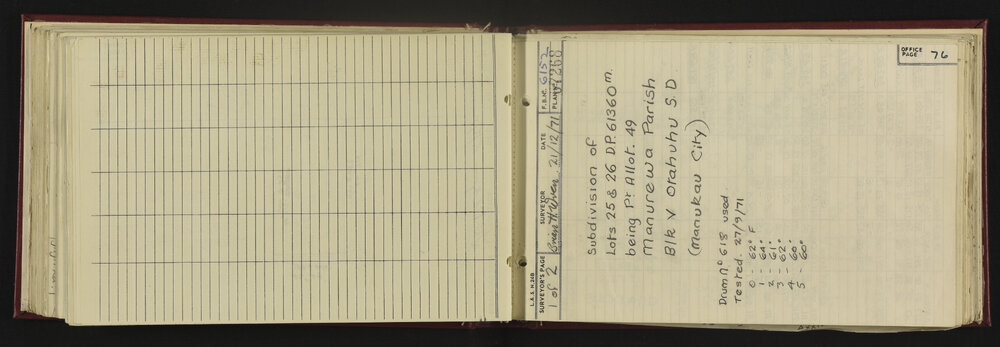 OFFICE PAGE 76
L. & S. N 26B
SURVEYOR'S PAGE
1 of 2
SURVEYOR
DATE
21/12/71
F.B. No. 6152
PLAN No.
Subdivision of
Lots 25 & 26 D.P. 61360 m.
being Pt Allot. 49
Manurewa Parish
Blk V Otahuhu S.D
(Manukau City)
Drum no 618 used
Tested. 27/9/71
0 - 62° F
1 - 64°
2 - 61°
3 - 62°
4 - 60°
5 - 60°